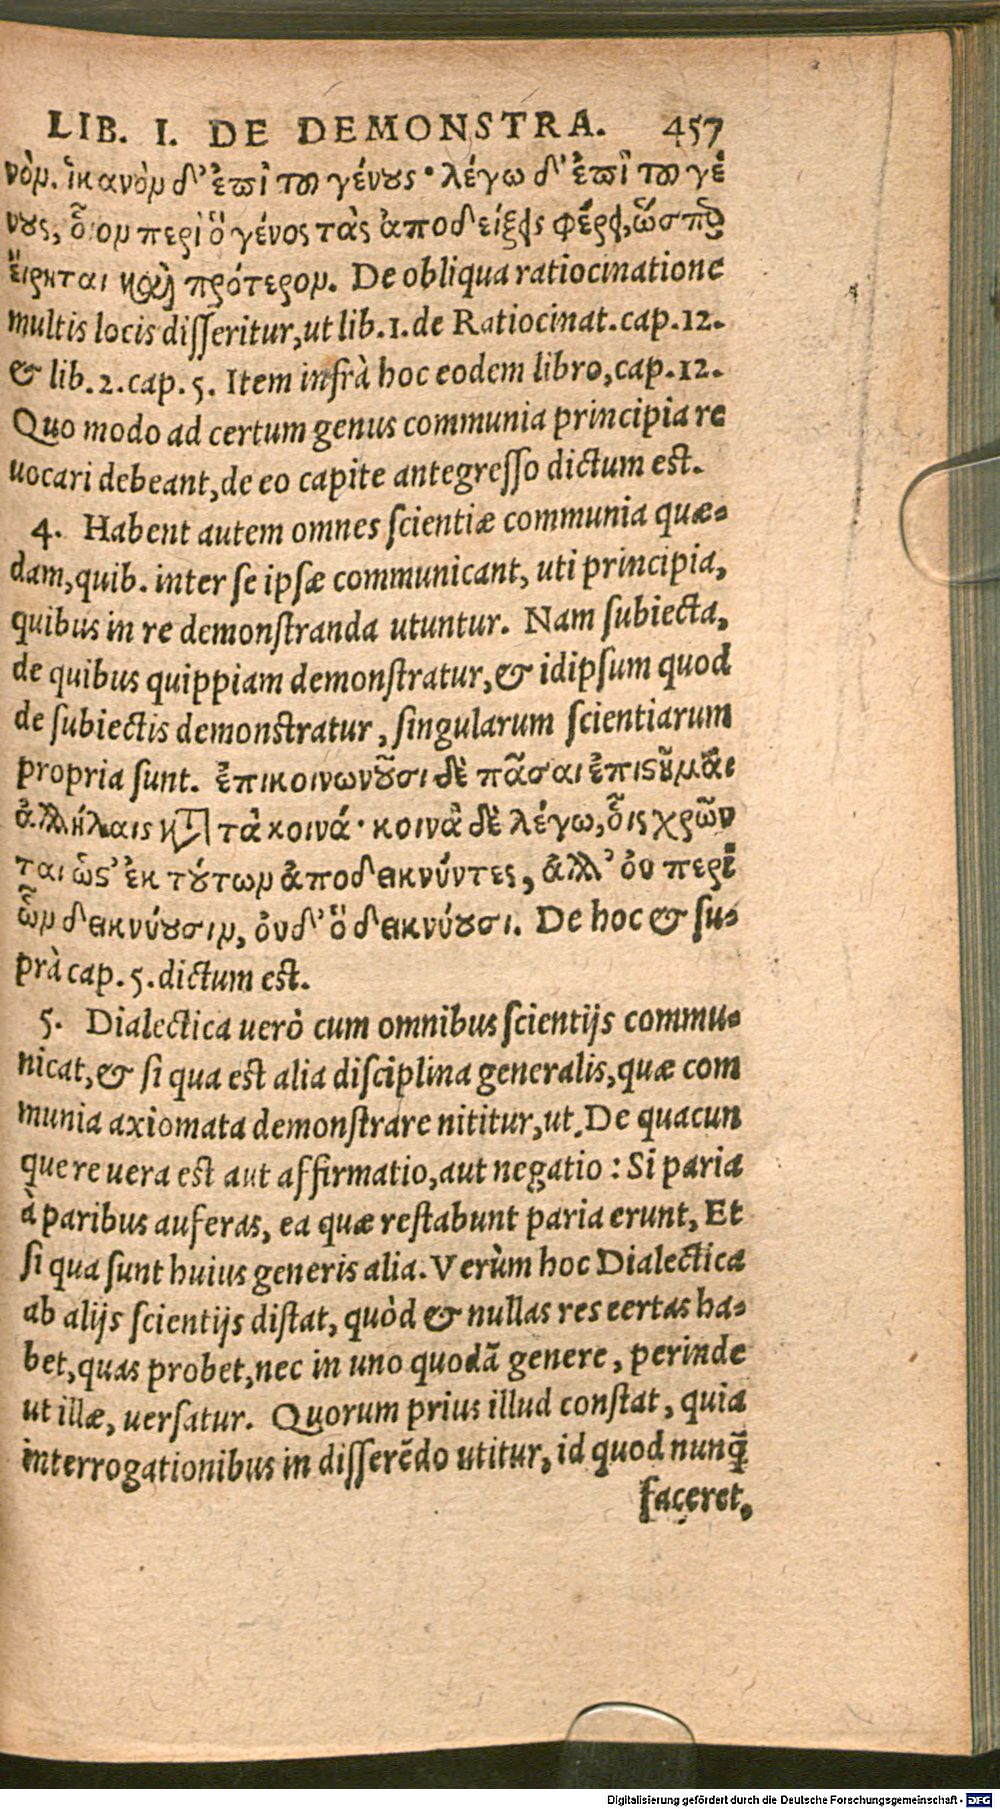 LIB. I. DE DEMONSTRA. 457
νὸμ. ἱκανὸμ δ' ἐπὶ τῶ γένους· λέγω δ' ἐπὶ τῶ γέ
νους, οἷομ περὶ ὃ γένος τὰς ἀποδείξεις φέρει, ὥσπερ
εἴρηται καὶ πρότερομ. De obliqua ratiocinatione
multis locis disseritur, ut lib. 1. de Ratiocinat. cap. 12.
& lib. 2. cap. 5. Item infrà hoc eodem libro, cap. 12.
Quo modo ad certum genus communia principia re
uocari debeant, de eo capite antegresso dictum est.
4. Habent autem omnes scientiæ communia quæ-
dam, quib. inter se ipsæ communicant, uti principia,
quibus in re demonstranda utuntur. Nam subiecta,
de quibus quippiam demonstratur, & idipsum quod
de subiectis demonstratur, singularum scientiarum
propria sunt. ἐπικοινωνοῦσι δὲ πᾶσαι ἐπιστῆμαι
ἀλλήλαις κατὰ τὰ κοινά· κοινὰ δὲ λέγω, οἷς χρῶν
ται ὡς ἐκ τούτωμ ἀποδεικνύντες, ἀλλ' οὐ περὶ
ὧμ δεικνύουσιμ, οὐδ' ὃ δεικνύουσι. De hoc & su-
prà cap. 5. dictum est.
5. Dialectica uerò cum omnibus scientijs commu-
nicat, & si qua est alia disciplina generalis, quæ com
munia axiomata demonstrare nititur, ut. De quacun
que re uera est aut affirmatio, aut negatio: Si paria
à paribus auferas, ea quæ restabunt paria erunt, Et
si qua sunt huius generis alia. Verùm hoc Dialectica
ab alijs scientijs distat, quòd & nullas res certas ha-
bet, quas probet, nec in uno quodã genere, perinde
ut illæ, uersatur. Quorum prius illud constat, quia
interrogationibus in disserẽdo utitur, id quod nunq̃
faceret,
Digitalisierung gefördert durch die Deutsche Forschungsgemeinschaft - DFG